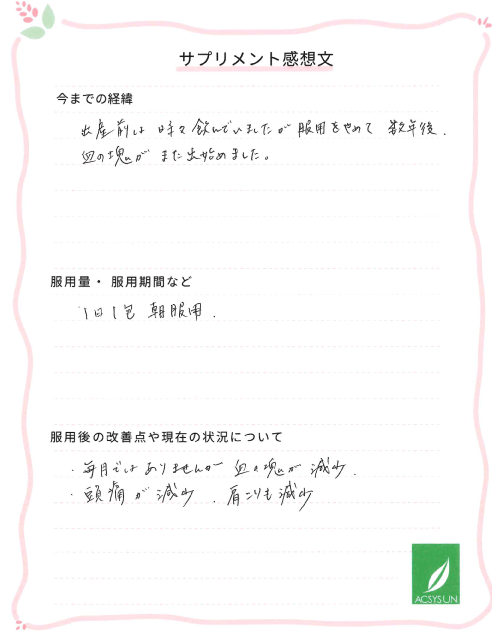 サプリメント感想文
今までの経緯
出産前は 時々飲んでいましたが 服用をやめて 数年後.
血の塊がまた出始めました。
服用量・ 服用期間など
1日1包 朝服用.
服用後の改善点や現在の状況について
・毎月ではありませんが 血の塊が減少.
・頭痛が減少 . 肩こりも減少
ACSYSUN